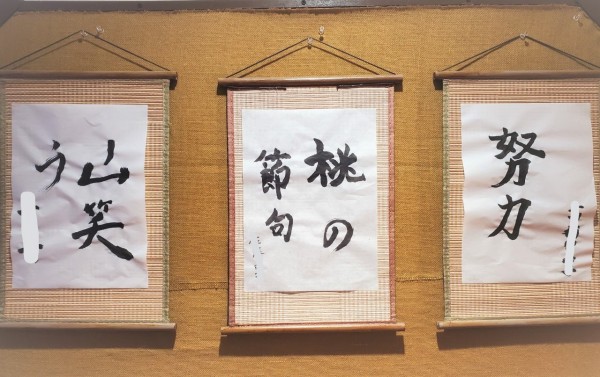 努力
桃の
節句
山笑
う